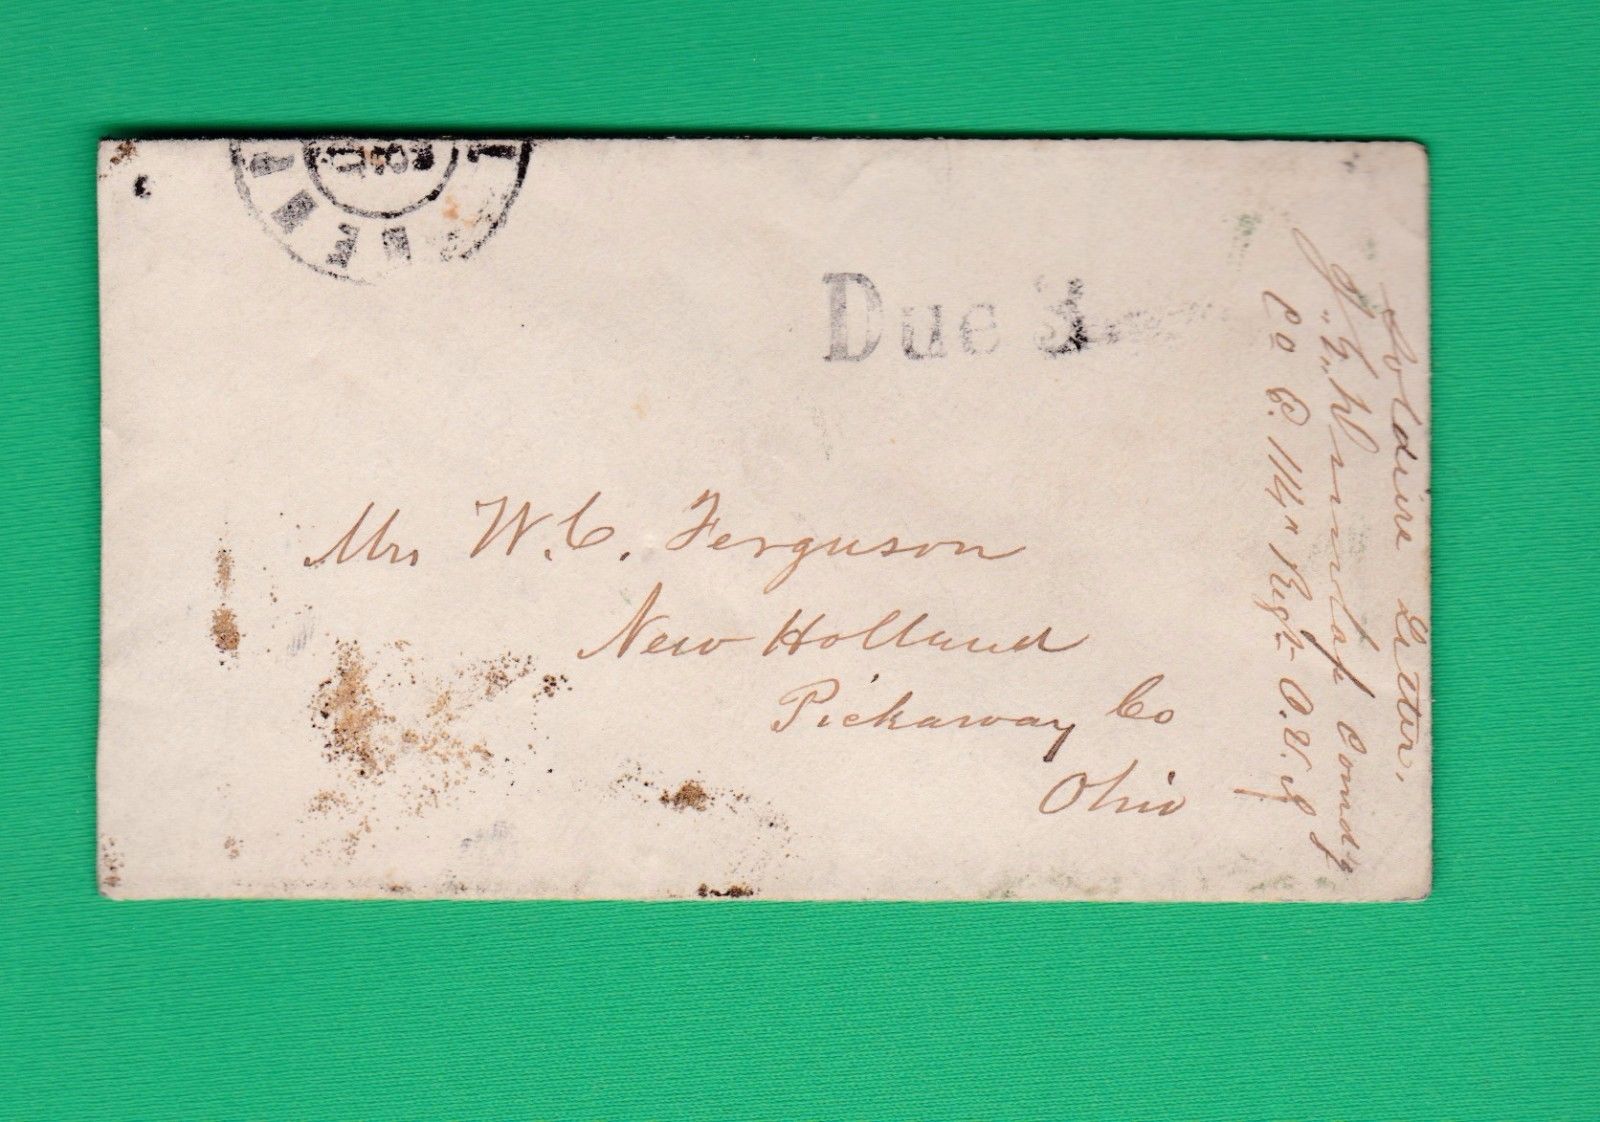 Due 3
Mrs W. C. Ferguson
New Holland
Pickaway Co
Ohio
Soldiers Letter.
Comdg
Co C. 114" Regt- O.V.I